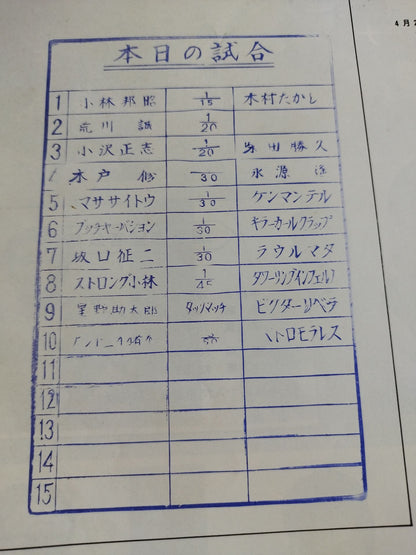 4月
本日の試合
1 小林邦昭 1/15 木村たかし
2 荒川 誠 1/20
3 小沢正志 1/20 柴田勝久
木戸 修 30 永源 遙
5 マササイトウ 1/30 ケンマンテル
6 ブッチャーバション 1/30 キラーカールクラップ
7 坂口征二 1/30 ラウルマタ
8 ストロング小林 1/45 タワーリングインフェルノ
9 星野勘太郎 タッグマッチ ビクターリベラ
10 トロモラレス
11
12
13
14
15